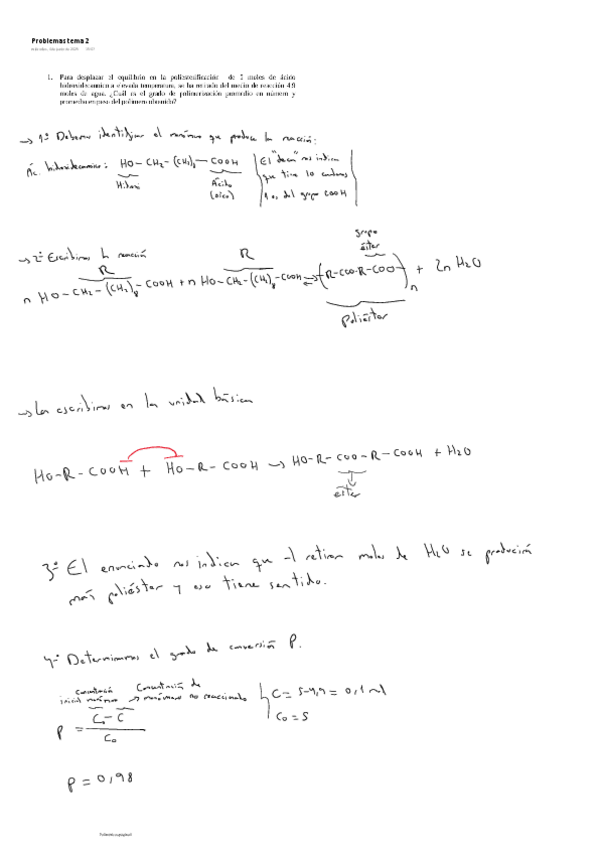 Problemas tema 2
1. Para desplazar el equilibrio en la poliesterificación de 5 moles de ácido
hidroxidecanoico a elevada temperatura, se ha retirado del medio de reacción 4.9
moles de agua. ¿Cuál es el grado de polimerización promedio en número y
promedio en peso del polímero obtenido?
→ 1º Debemos identificar el monómero que produce la reacción:
Ác. hidroxidecanoico: HO-CH₂-(CH₂)₈-COOH
Hidroxi
Ácido
(oico)
El "deca" nos indica
que tiene 10 carbonos
del grupo COOH
→ 2º Escribimos la reacción
grupo
éster
R R
n HO-CH₂-(CH₂)₈-COOH + n HO-CH₂-(CH₂)₈-COOH ⇄ (R-COO-R-COO)n + 2n H₂O
Poliéster
→ La escribimos en la unidad básica
HO-R-COOH + HO-R-COOH → HO-R-COO-R-COOH + H₂O
éster
3º El enunciado nos indica que al retirar moles de H₂O se producirá
más poliéster y eso tiene sentido.
4º Determinamos el grado de conversión P.
Concentración inicial monómero
Concentración de monómero no reaccionado
C = 5-4,9 = 0,1 mol
C₀ = 5
P = C₀-C
C₀
P = 0,98